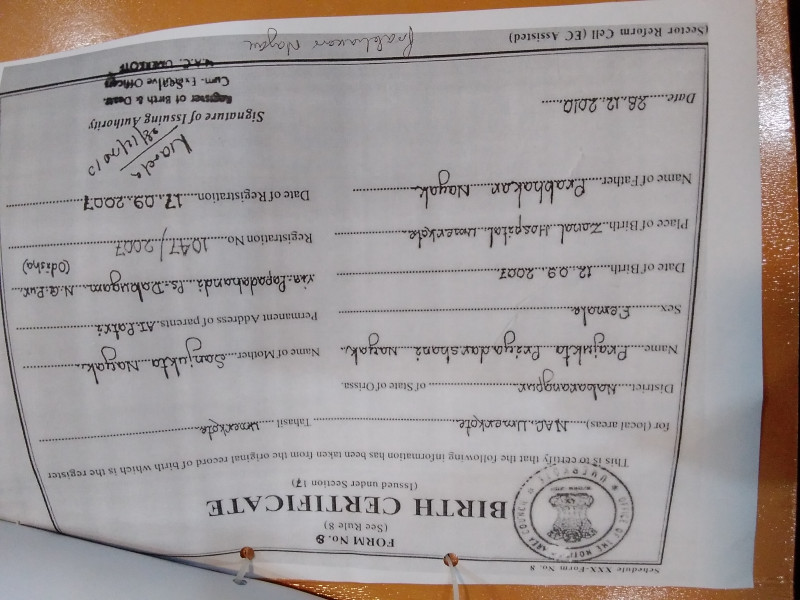 Schedule XXX-Form No. 8
FORM No. 8
(See Rule 8)
BIRTH CERTIFICATE
(Issued under Section 17)
This is to certify that the following information has been taken from the original record of birth which is the register
for (local areas).....NAC, Umerkote..... Tahasil .....Umerkote.....
District.....Nabarangpur..... of State of Orissa.
Name.....Prajukta Priyadarshani Nayak..... Name of Mother.....Sanjukta Nayak.....
Sex.....Female..... Permanent Address of parents.....At. Patri
Date of Birth.....12.09.2007..... Via-Papadahandi. Ps- Dabugam. N.G.Pur.....
(Odisha)
Place of Birth.....Zonal Hospital Umerkote..... Registration No.....1047/2007
Name of Father.....Prabhakar Nayak..... Date of Registration.....17.09.2007.....
28/12/2010
Date.....28.12.2010..... Signature of Issuing Authority
Registrar of Birth & Death
Cum. Executive Officer
N.A.C. UMERKOTE
Sector Reform Cell (EC Assisted)
Prabhakar Nayak